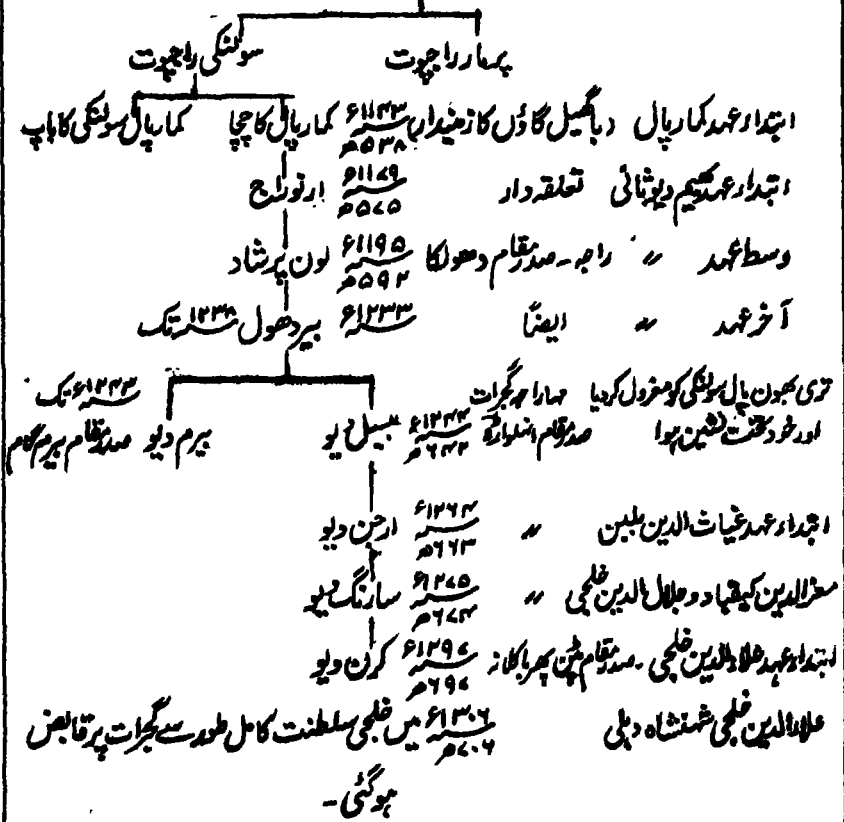 پرمار راجپوت سولنکی راجپوت
ابتداء عہد کمارپال (باگھیل گاؤں کا زمیندار) ۱۱۴۳ء ۵۳۸ھ کمارپال کا چچا کمارپال سولنکی کا باپ
ابتداء عہد بھیم دیو ثانی تعلقہ دار ۱۱۷۹ء ۵۷۵ھ ارنوراج
وسط عہد 〃 راجہ۔ صدر مقام دھولکا ۱۱۹۵ء ۵۹۲ھ لون پرشاد
آخر عہد 〃 ایضًا ۱۲۳۳ء بیردھول ۱۲۳۸ تک
تری بھون پال سولنکی کو معزول کردیا مہاراجہ گجرات ۱۲۴۳ء تک
اور خود تخت نشین ہوا صدر مقام انہلواڑہ ۱۲۴۴ء ۶۴۲ھ بیسل دیو بیرم دیو صدر مقام بیرم گام
ابتداء عہد غیاث الدین بلبن 〃 ۱۲۶۴ء ۶۶۳ھ ارجن دیو
معزالدین کیقباد و جلال الدین خلجی 〃 ۱۲۷۵ء ۶۷۴ھ سارنگ دیو
ابتداء عہد علاؤالدین خلجی۔ صدر مقام پٹن پھر باگلانہ ۱۲۹۷ء ۶۹۷ھ کرن دیو
علاؤالدین خلجی شہنشاہ دہلی ۱۳۰۶ء ۷۰۶ھ میں خلجی سلطنت کامل طور سے گجرات پر قابض
ہوگئی۔